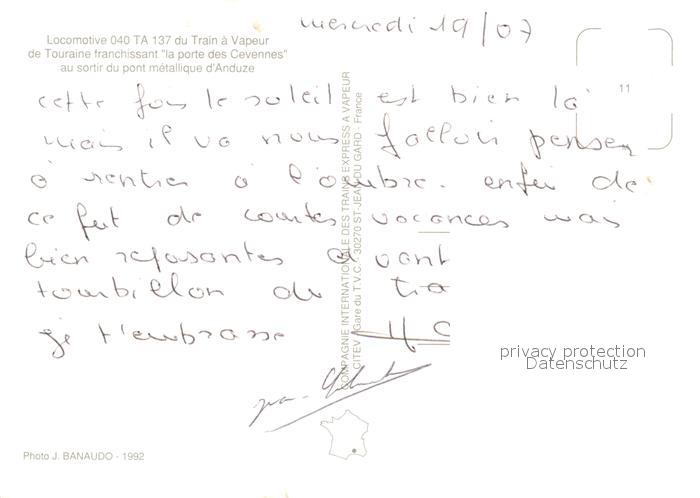 mercredi 19/07
Locomotive 040 TA 137 du Train à Vapeur
de Touraine franchissant "la porte des Cevennes"
au sortir du pont métallique d'Anduze
11
cette fois le soleil est bien là
mais il va nous falloir penser
à rentrer à l'ombre. enfin de
ce fut de courtes vacances mais
bien reposantes avant
tourbillon du
je t'embrasse
COMPAGNIE INTERNATIONALE DES TRAINS EXPRESS A VAPEUR
CITEV - Gare du T.V.C. - 30270 ST-JEAN-DU-GARD - France
privacy protection
Datenschutz
Photo J. BANAUDO - 1992